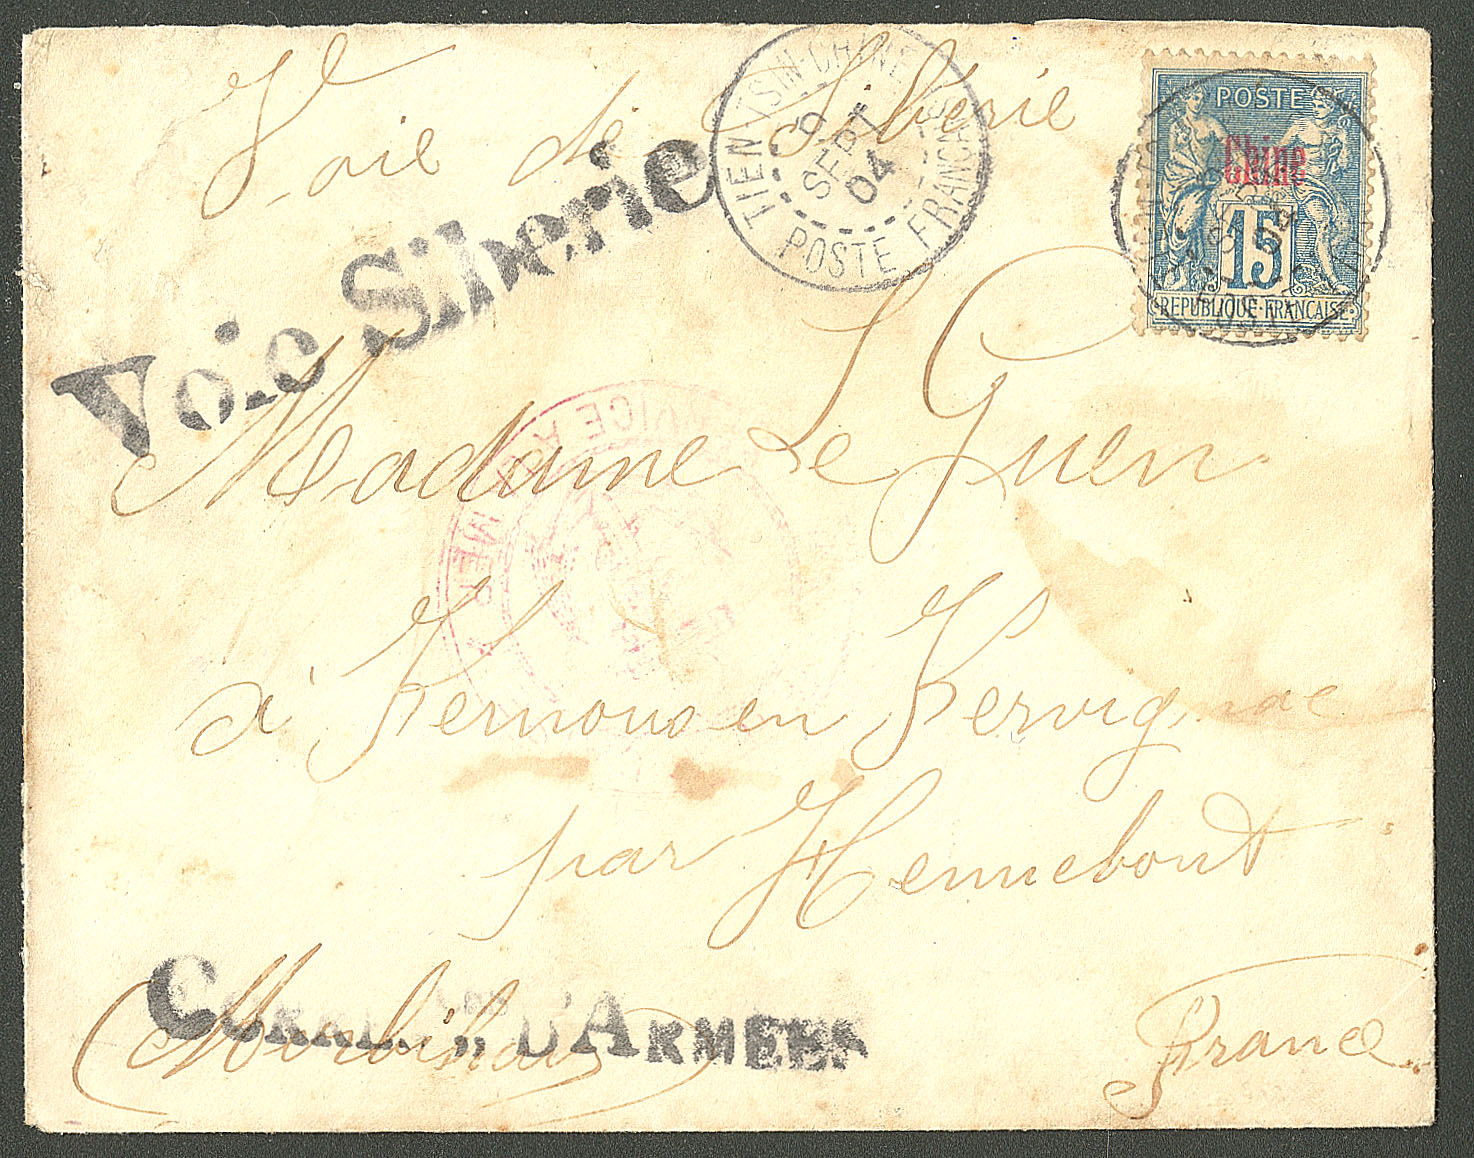 Voie de Siberie
Voie Siberie
TIEN-TSIN-CHINE
6
SEPT
04
POSTE FRANÇAISE
POSTE
Chine
15
REPUBLIQUE FRANÇAISE
Madame Le Guen
à Kernous en Kervignac
par Hennebont
(Morbihan)
CORR. D'ARMEES
France